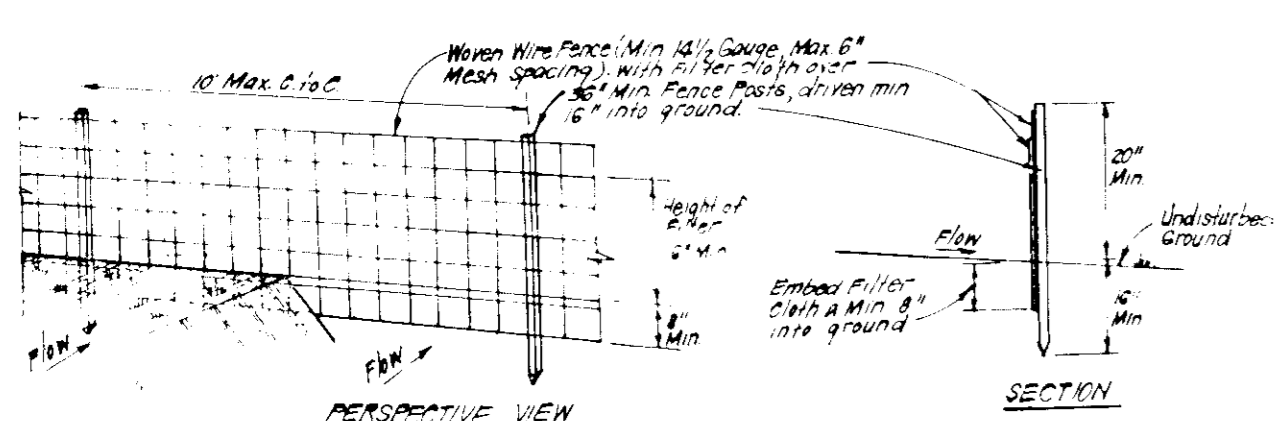 Woven Wire Fence (Min 14½ Gauge, Max. 6"
Mesh Spacing). with Filter Cloth over
36" Min. Fence Posts, driven min
16" into ground.
10' Max. C. to C.
Height of
Filter
6" Min
8"
Min.
Flow
Flow
PERSPECTIVE VIEW
20"
Min.
Undisturbed
Ground
Flow
Embed Filter
Cloth A Min 8"
into ground
16"
Min
SECTION